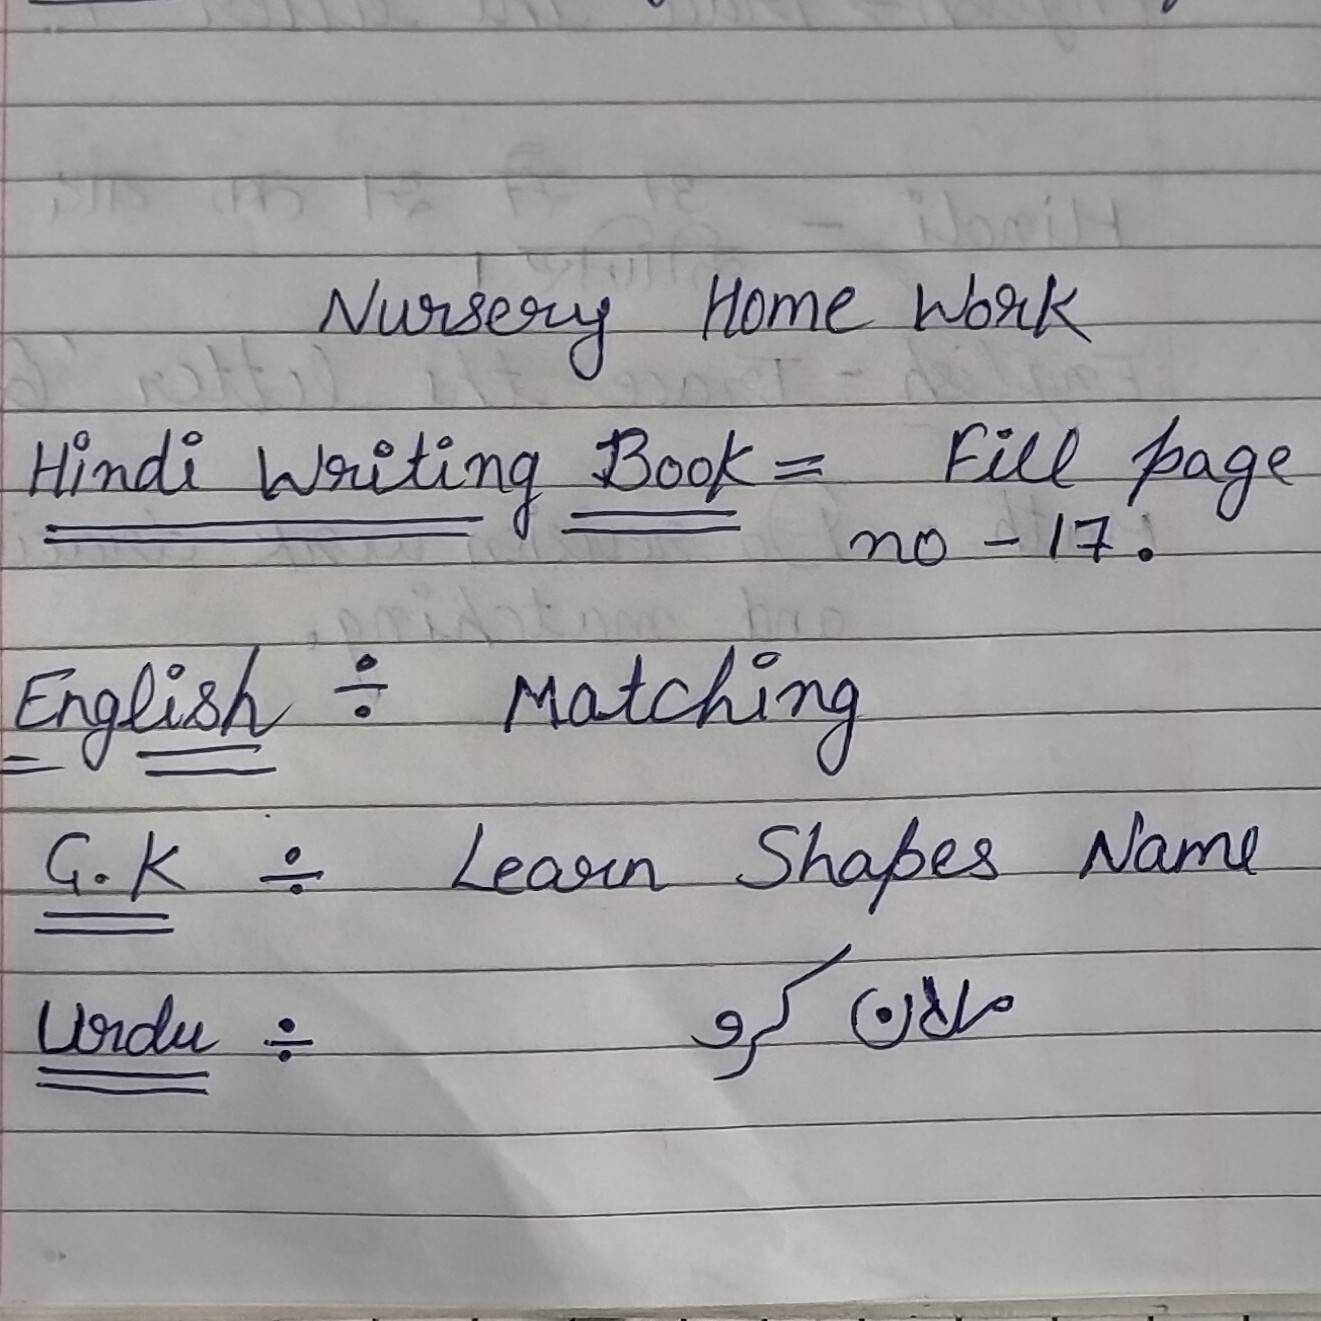 Nursery Home Work
Hindi Writing Book = Fill page
no - 17.
English ÷ Matching
G.K ÷ Learn Shapes Name
Urdu ÷ ملان کرو